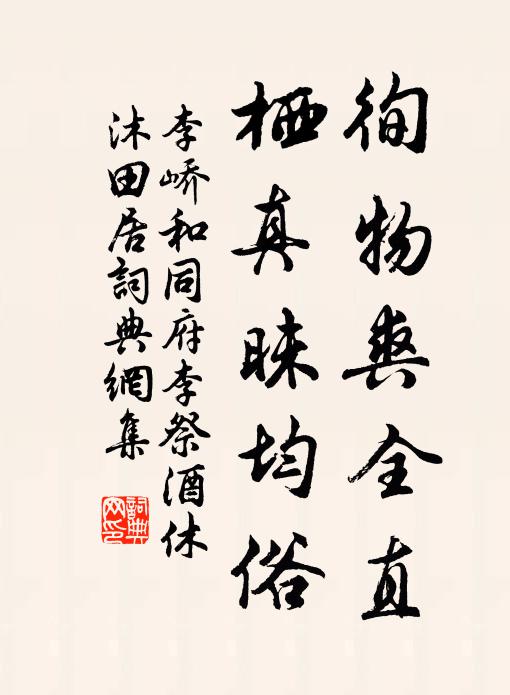 徇物爽全直
栖真昧均俗
李峤和同府李祭酒休
沐田居詞典網集
詞典網印